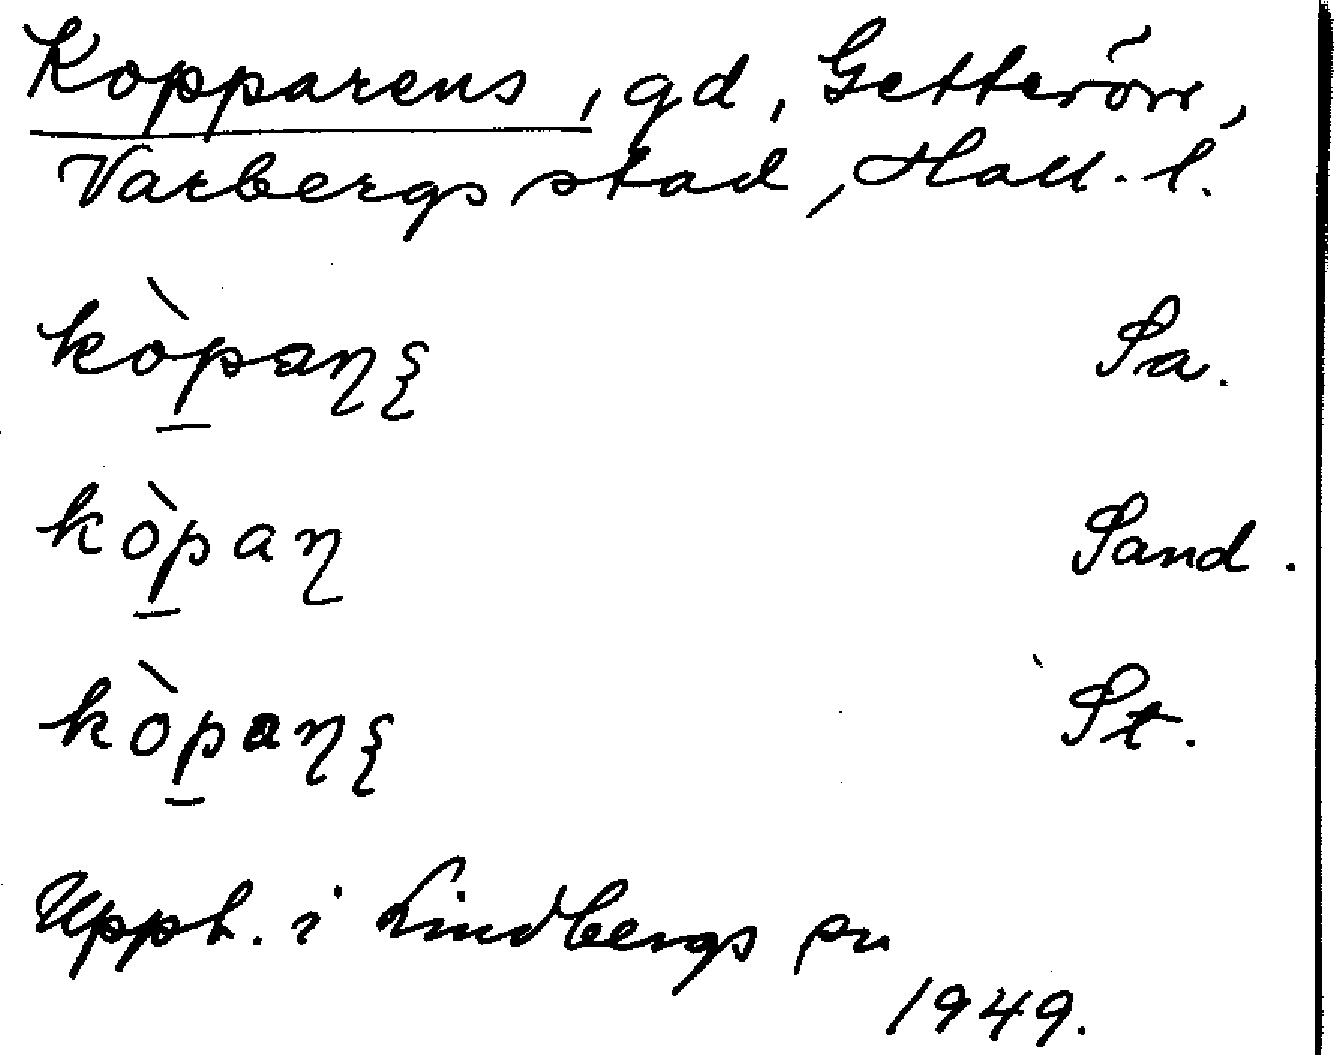 Kopparens, gd, Getterön,
Varbergs stad, Hall. l.
kòp̱aƞꞩ Sa.
kòp̱aƞ Sand.
kòp̱aƞꞩ St.
Upph. i Lindbergs sn
1949.